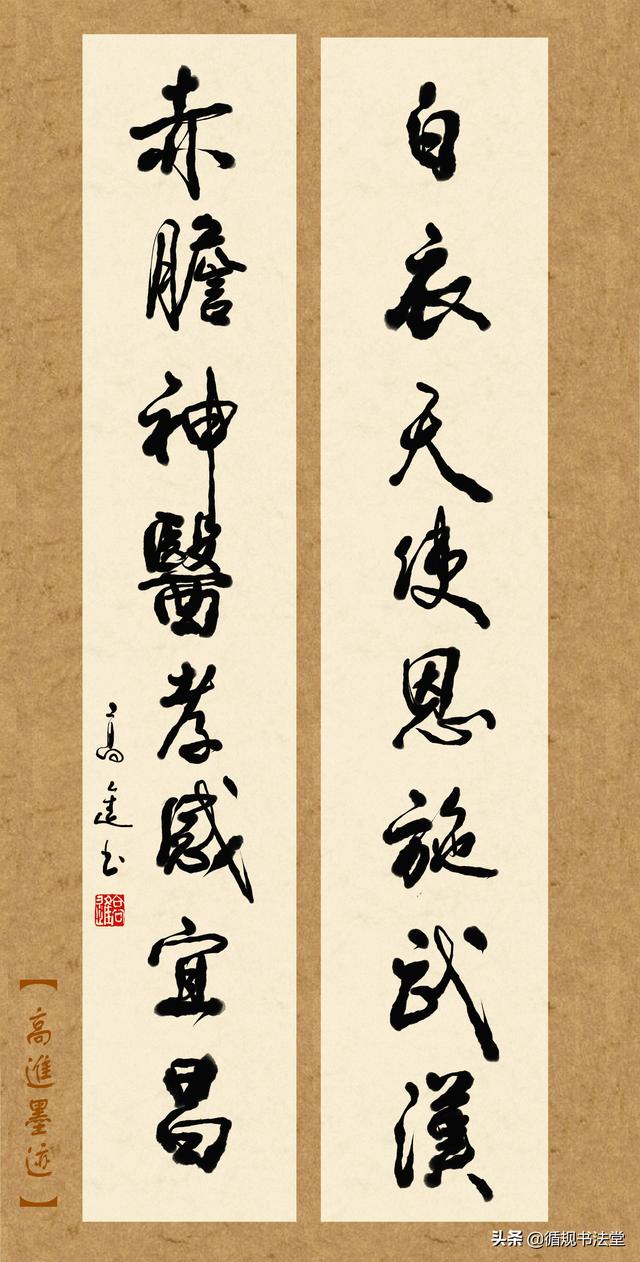 白衣天使恩施武漢
赤膽神醫孝感宜昌
高進书
【高進墨迹】
头条 @循规书法堂